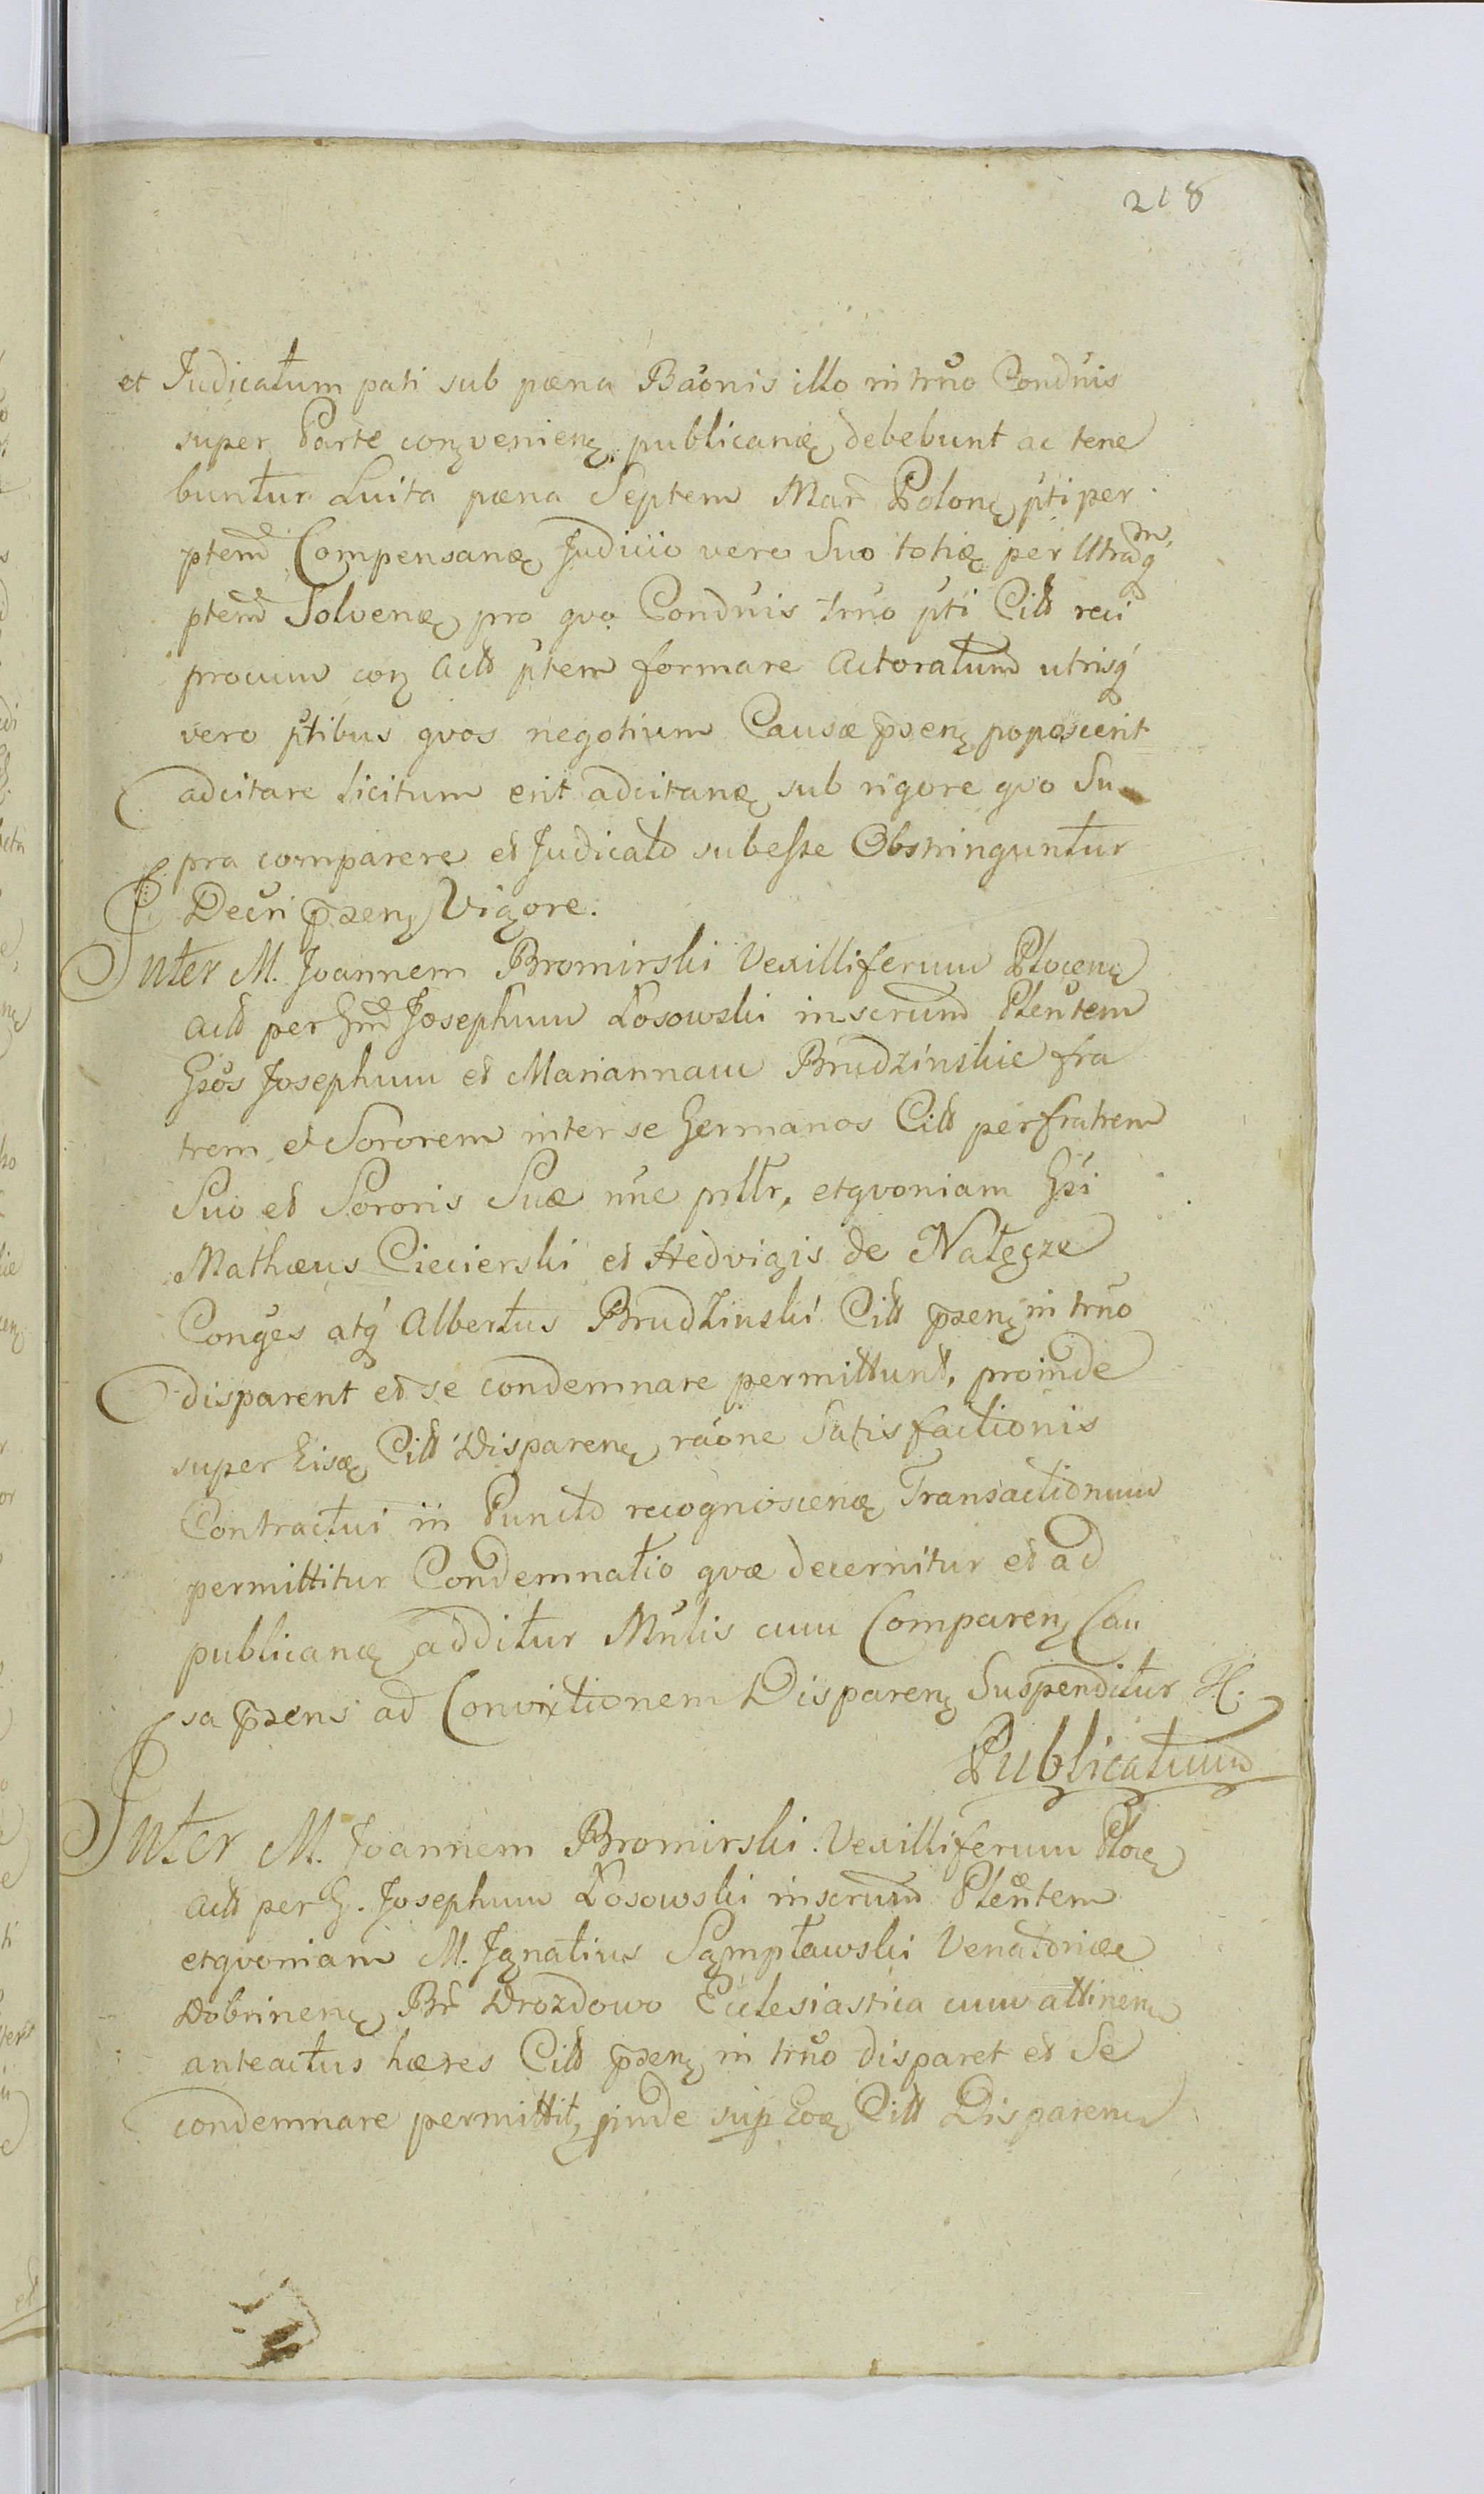 218
et Judicatum pati sub pæna Baõnis illo in trũo Condũis
super Parte conȝvenienȝ publicanæ debebunt ac tene
buntur Luita pæna Septem Mar̃ Polonȝ p̃ti per
ptem̃ Compensanæ Judicio vero Suo totiæ per Utramq́
ptem̃ Solvenæ pro qvo Condũis trũo p̃ti Citt reci
procum conȝ Actt p̃tem formare Actoratum utrisq́
vero p̃tibus qvos negotium Causæ p̃senȝ poposcerit
adcitare licitum erit adcitanæ sub rigore qvo Su
pra comparere et Judicato subesse Obstringuntur
Decr̃i p̃senȝ Vigore.
Inter M. Joannem Bromirski Vexilliferum Plocenȝ
Actt per Gm̃ Josephum Łosowski inscrum̃ Plen̆tem
Gsõs Josephum et Mariannam Brudzinskie fra
trem et Sororem inter se Germanos Citt per fratrem
Suo et Sororis Suæ nñe p̃ttr, et qvoniam Gsĩ
Mathæus Ciecierski et Hedvigis de Nałęcze
Conges̃ atq́ Albertus Brudzinski Citt p̃senȝ in trũo
disparent et se condemnare permittunt, proinde
super Eisæ Citt Disparenȝ raõne Satisfactionis
Contractui in Puncto recognoscenæ Transactionum
permittitur Condemnatio qvæ decernitur et ad
publicanæ additur Mñlis cum Comparenȝ Cau
sa p̃sens ad Convictionem Disparenȝ Suspenditur H.
Publicatum
Inter M. Joannem Bromirski Vexilliferum Plocȝ
Actt per G. Josephum Łosowski inscrum̃ Plen̆tem
et qvoniam M. Ignatius Sąmpławski Venatoriæ
Dobrinenȝ Br̃ Drozdowo Ecclesiastica cum attinenȝ
anteactus hæres Citt p̃senȝ in trũo disparet et Se
condemnare permittit, pinde sup Eoæ Citt Disparenȝ